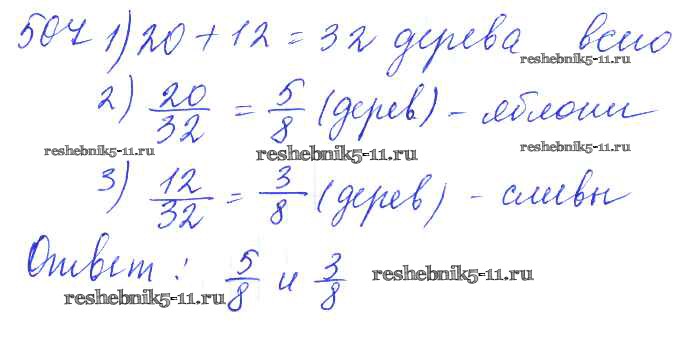 507 1) 20 + 12 = 32 дерева всего
reshebnik5-11.ru
2) 20/32 = 5/8 (дерев) - яблони
reshebnik5-11.ru reshebnik5-11.ru reshebnik5-11.ru
3) 12/32 = 3/8 (дерев) - сливы
Ответ: 5/8 и 3/8
reshebnik5-11.ru reshebnik5-11.ru